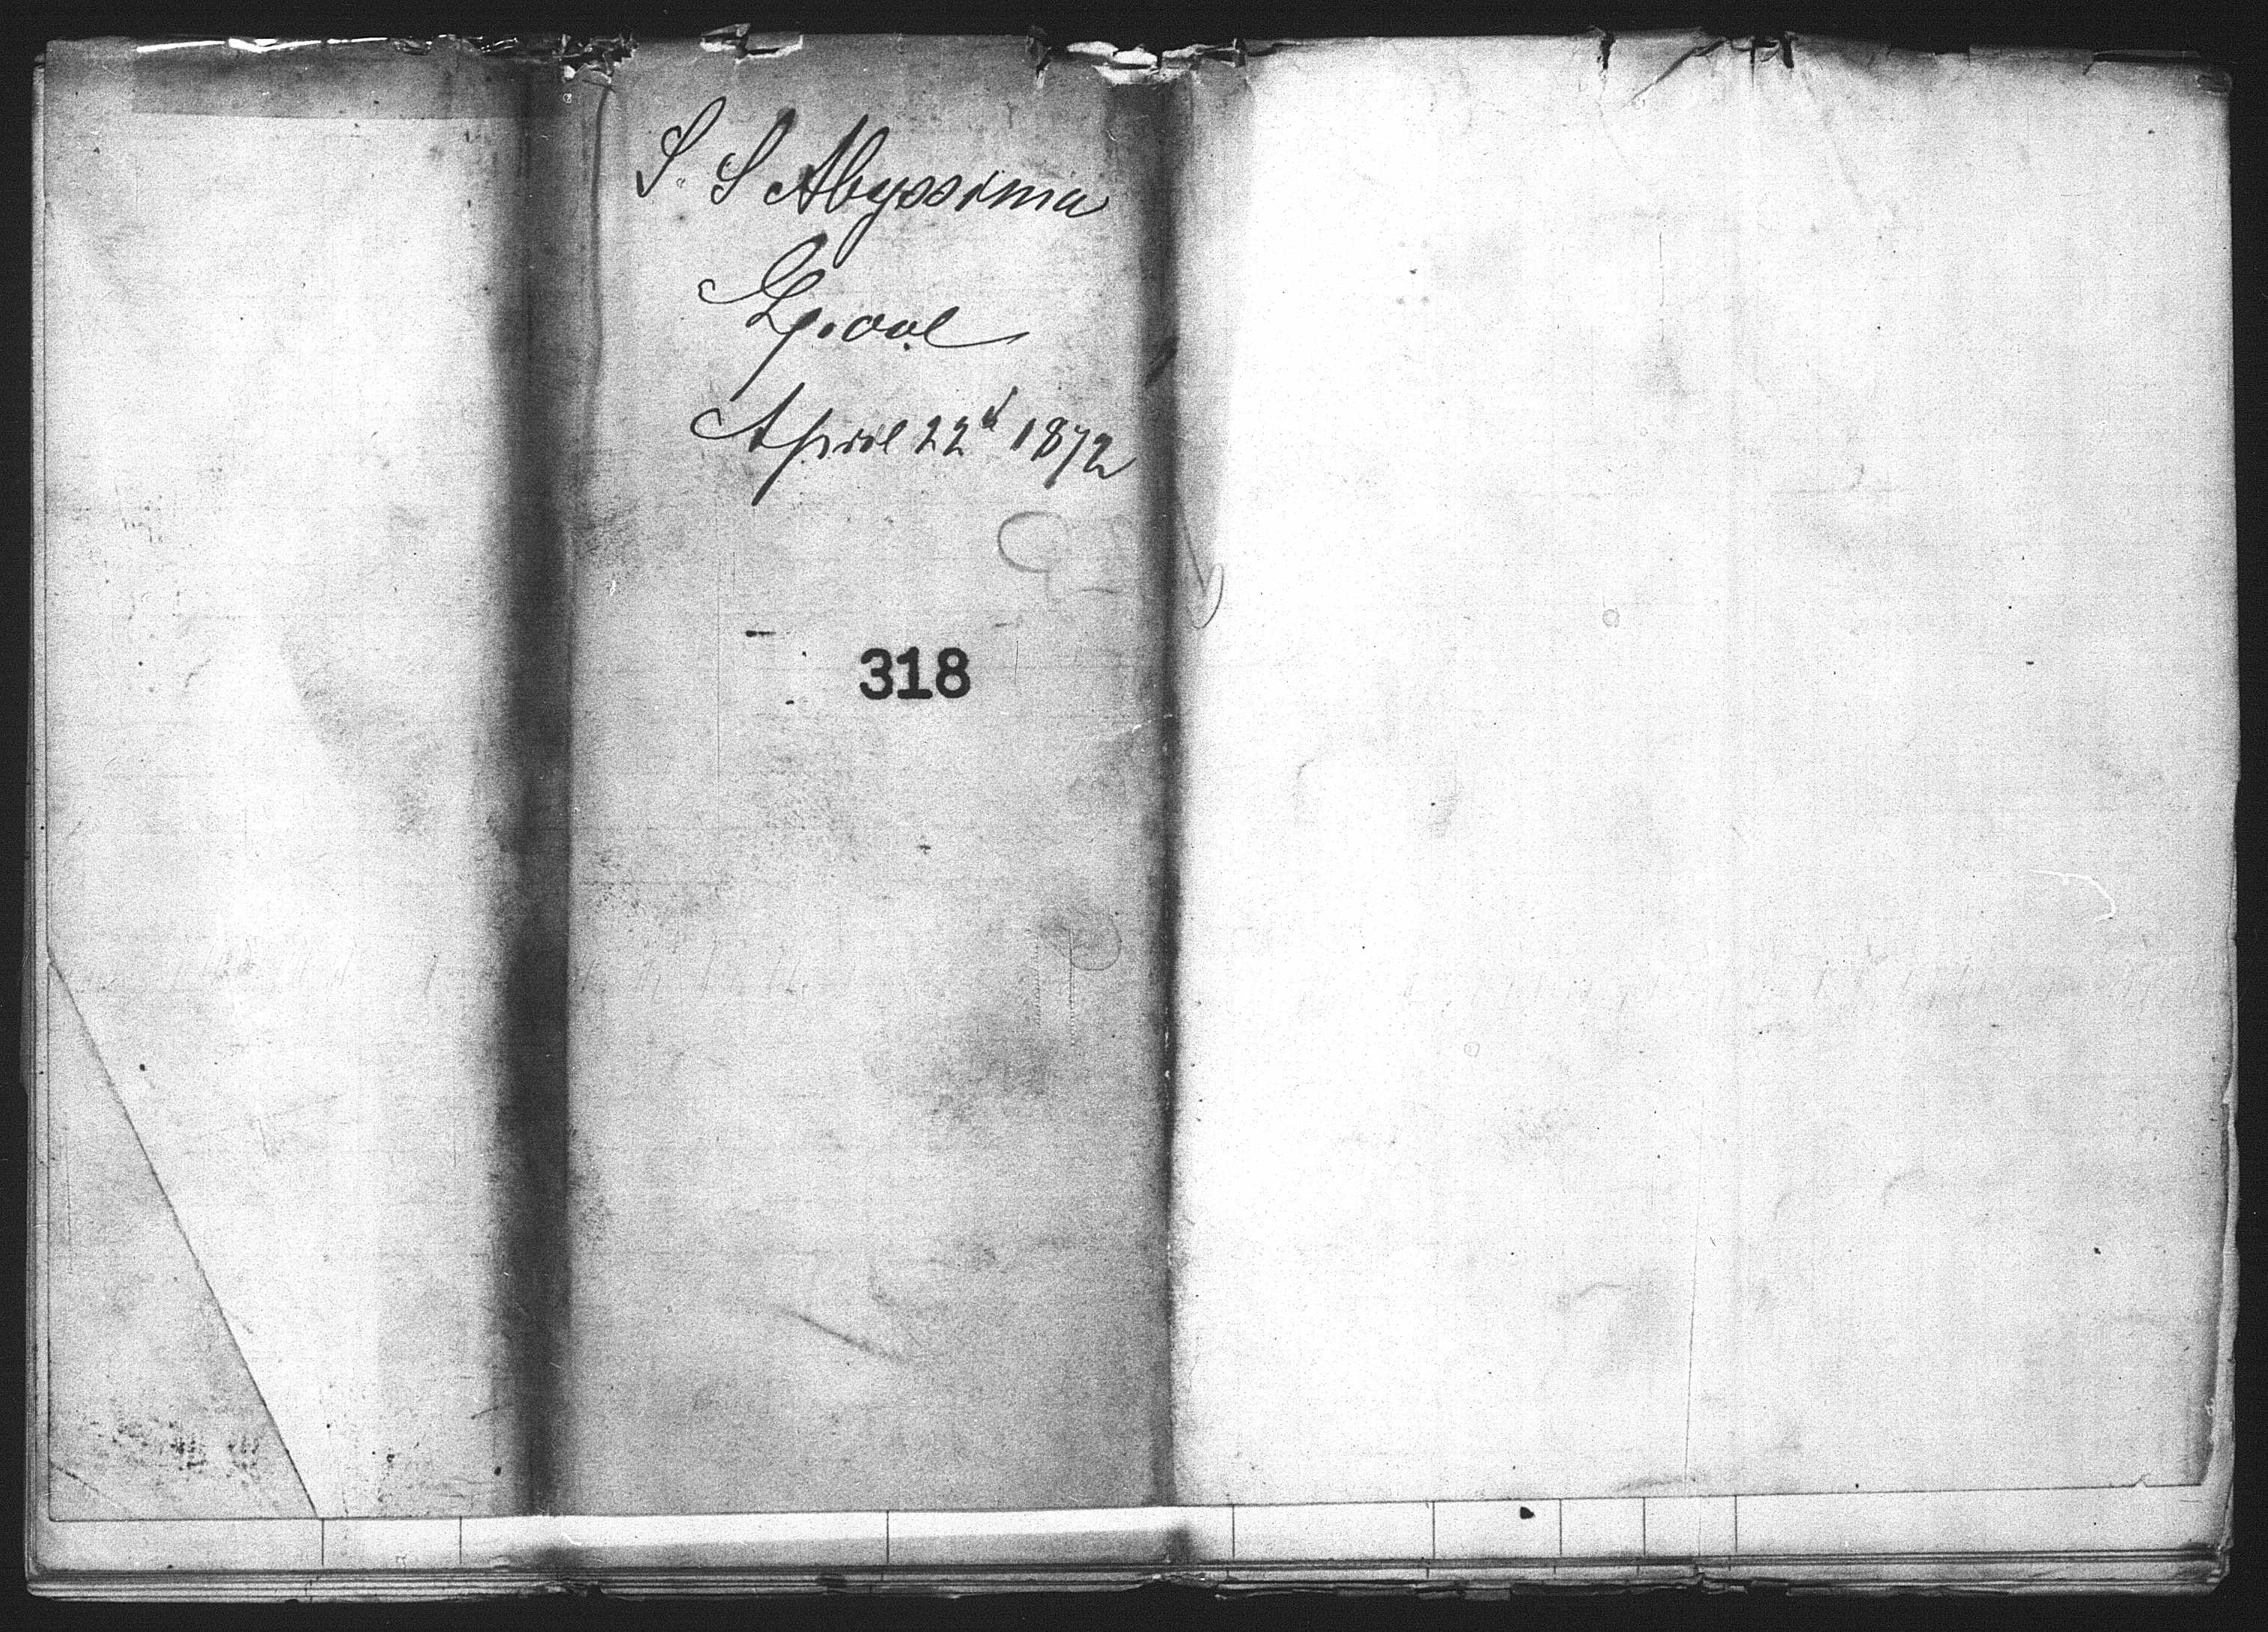 S. S Abyssinia
Lpool
April 22d 1872
318